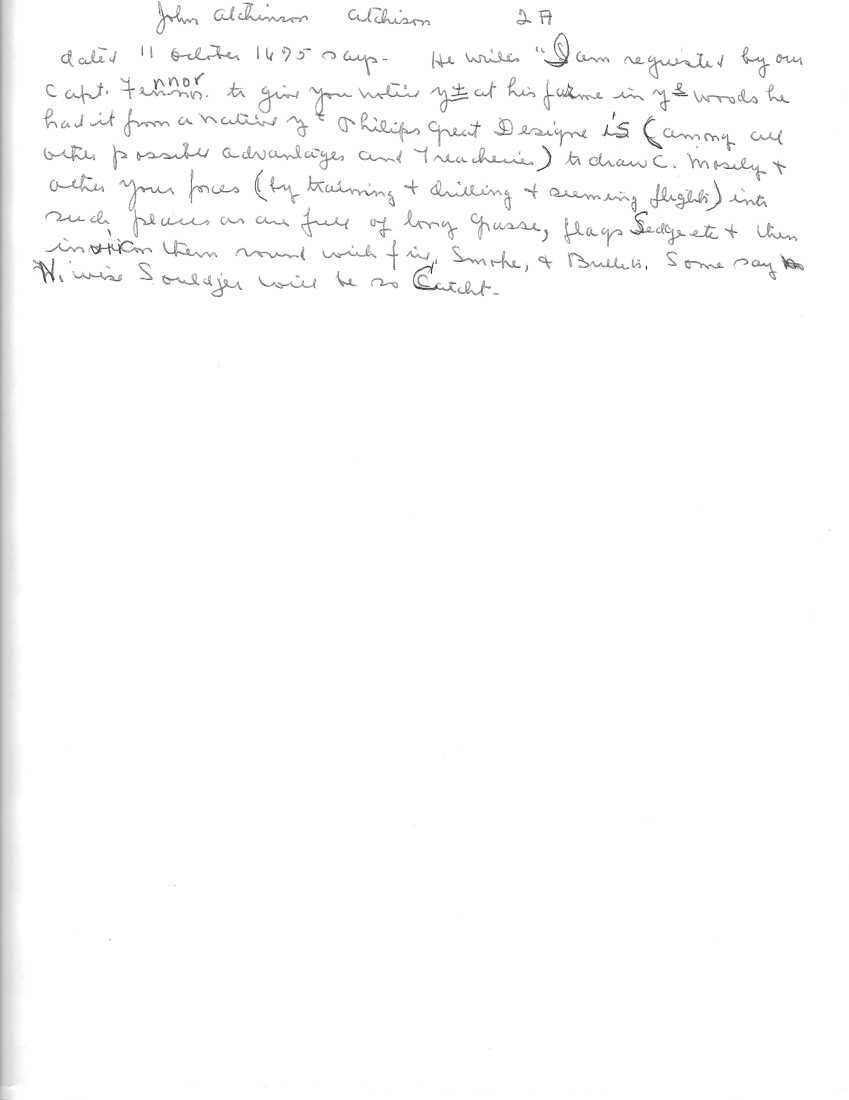 John Atchinson Atchison 2A
dated 11 October 1675 says - He writes "I am requested by our
Capt. Fennor to give you notice yt at his farme in ye woods he
had it from a native yt Philips great Designe is (among all
other possible advantages and Treacheries) to draw C. Mosely +
other your forces (by training + drilling + seeming flights) into
such places as are full of long grasse, flags Sedge etc + then
them round with fire, Smoke, + Bullets. Some say
N. wise Souldjer will be so Catcht -